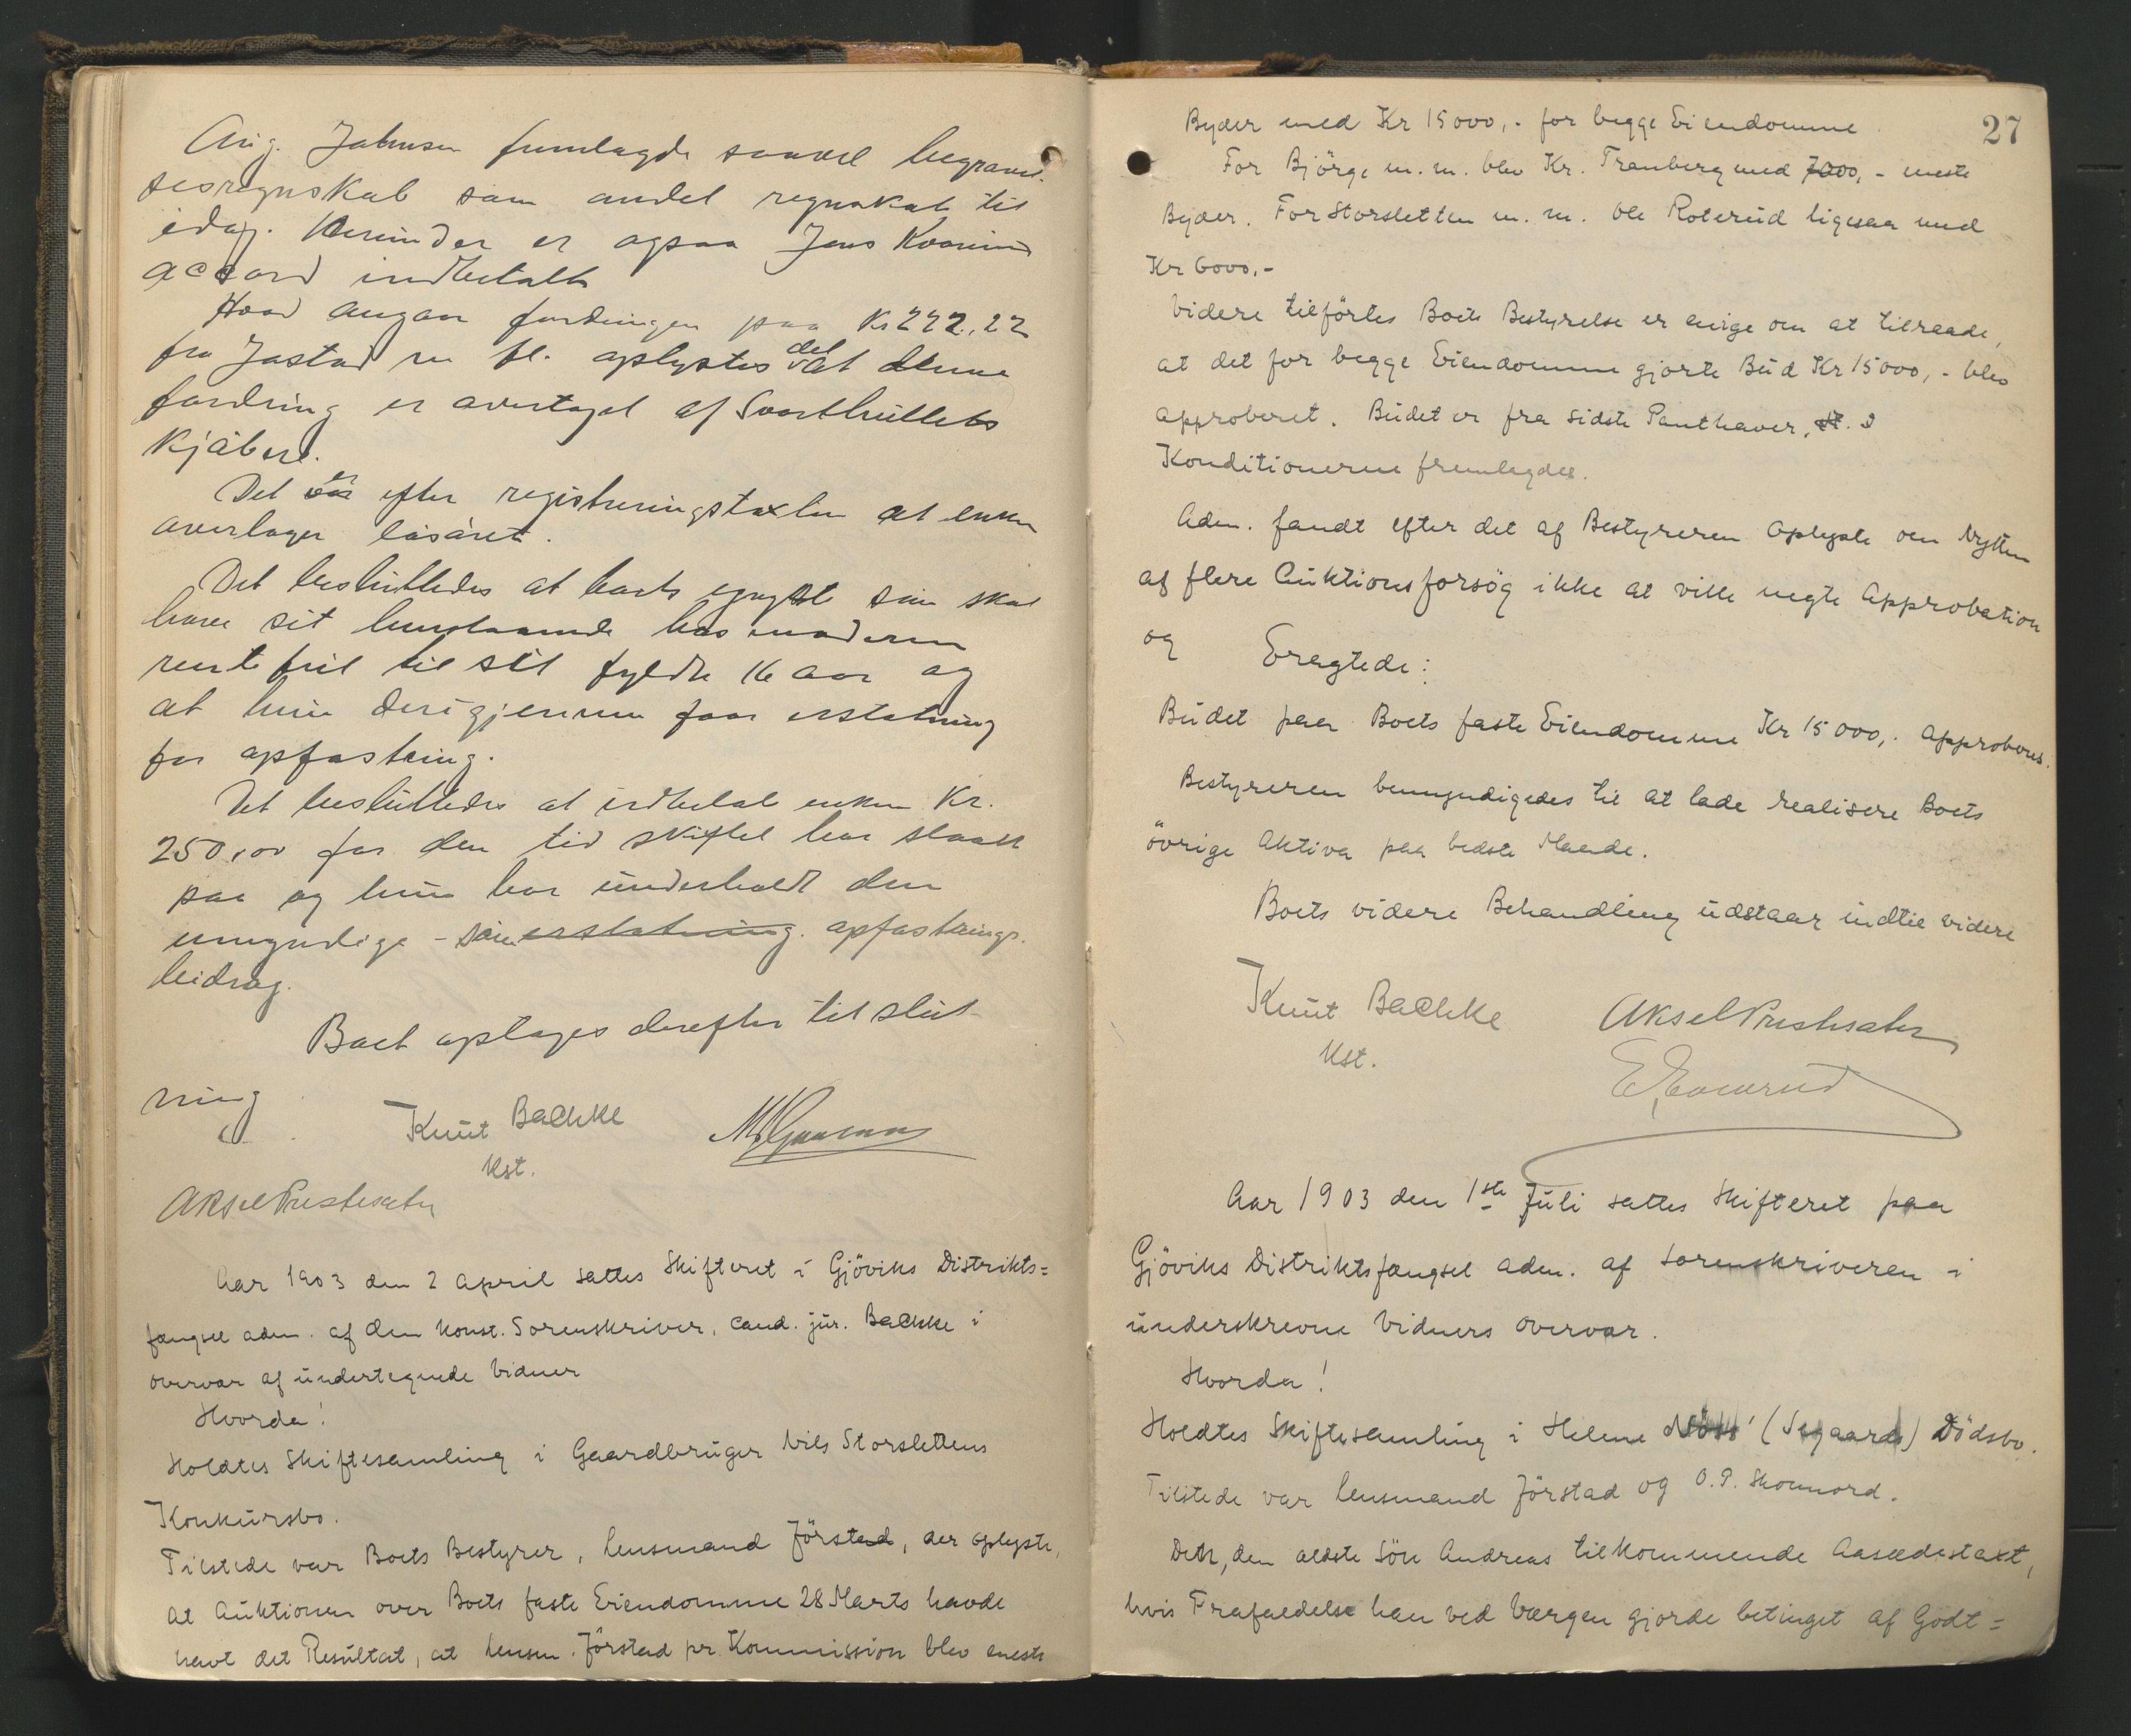 Aug. Johnsen fremlagde saavel begravel-
sesregnskab som andet regnskab til
idag. Herunder er ogsaa Jens
accord indbetalt
Hvad angaar fordringen paa Kr 222,22
fra Jastad m fl. oplystes det at denne
fordring er overtaget af Svarthullets
Kjöbere.
Det er efter registreringstaxten at enken
overtager lösöret.
Det besluttedes at boets sön skal
have sit henstaaende hos moderen
rentefrit til sit fyldte 16 aar og
at hun derigjennem faar erstatning
for opfostring.
Det besluttedes at indbetale enken Kr.
250,00 for den tid skiftet har staaet
paa og hun har underholdt den
umyndige sön erstatning. opfostrings-
bidrag.
Boet optages derefter til slut-
ning
Knut Bachke
Kst.
Aksel Prestesater
Aar 1903 den 2 April sattes Skifteret i Gjöviks Distrikts=
fængsel adm. af den konst. Sorenskriver, cand. jur. Bachke i
overvær af undertegnede Vidner
Hvorda!
Holdtes Skiftesamling i Gaardbruger Nils Storslettens
Konkursbo.
Tilstede var Boets Bestyrer, Lensmand Jörstad, der oplyste,
at Auktionen over Boets faste Eiendomme 28 Marts havde
havt det Resultat, at Lensm. Jörstad pr. Kommission blev eneste
27
Byder med Kr 15000,- for begge Eiendomme.
For Björge m. m. blev Kr. Tranberg med 7000,- eneste
Byder. For Storsletten m. m. Ole Roterud ligesaa med
Kr 6000,-
Videre tilförtes Boets Bestyrelse er enige om at tilraade,
at det for begge Eiendomme gjorte Bud Kr 15000,- blev
approberet. Budet er fra sidste Panthaver,
Konditionerne fremlagdes.
Adm. fandt efter det af Bestyreren oplyste om Nytten
af flere Auktionsforsög ikke at ville negte Approbation
og Eragtede:
Budet paa Boets faste Eiendomme Kr 15000,- approberes.
Bestyreren bemyndigedes til at lade realisere Boets
övrige Aktiva paa bedste Maade.
Boets videre Behandling udstaar indtil videre
Knut Bachke Aksel Prestesater
Kst.
Aar 1903 den 1ste Juli sattes Skifteret paa
Gjöviks Distriktsfængsel adm. af Sorenskriveren i
underskrevne Vidners overvær.
Hvorda!
Holdtes Skiftesamling i Helene (Segaard) Dödsbo.
Tilstede var Lensmand Jörstad og O. P.
Dett, den ældste Sön Andreas tilkommende Aasædestaxt,
hvis Frafaldelse han ved Værgen gjorde betinget af Godt=